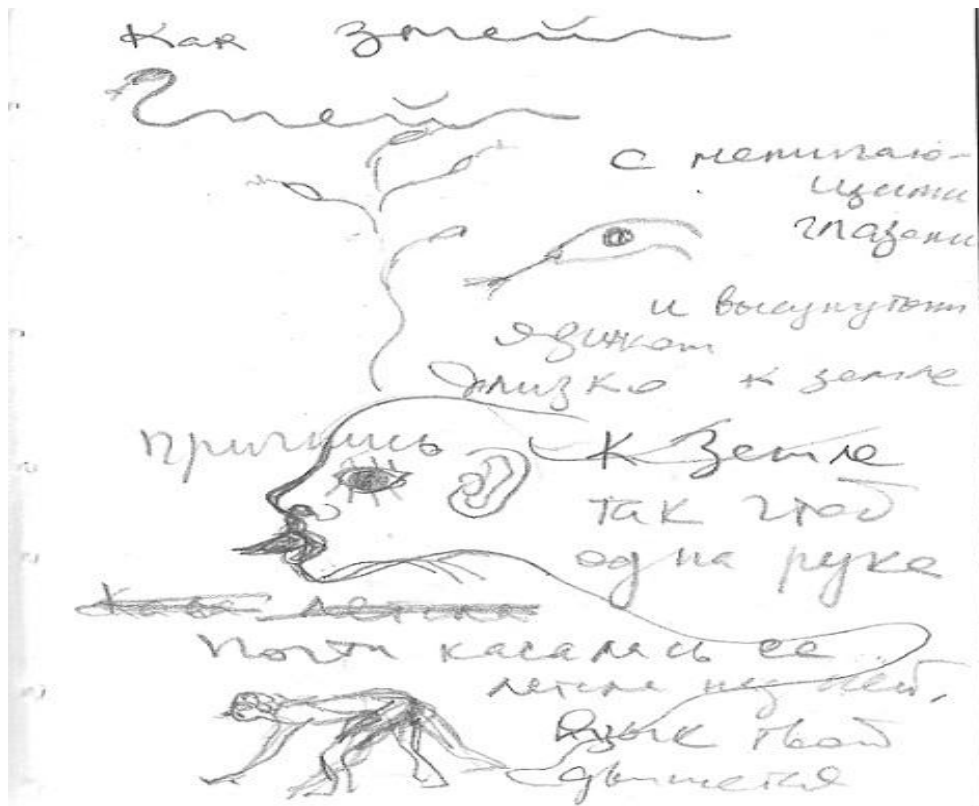 Как змей
Змей
с немигаю-
щими
глазами
и высунутым
языком
близко к земле
пригнись к Земле
так чтоб
одна рука
почти касалась ее
летела над ней,
Язык твой
движется